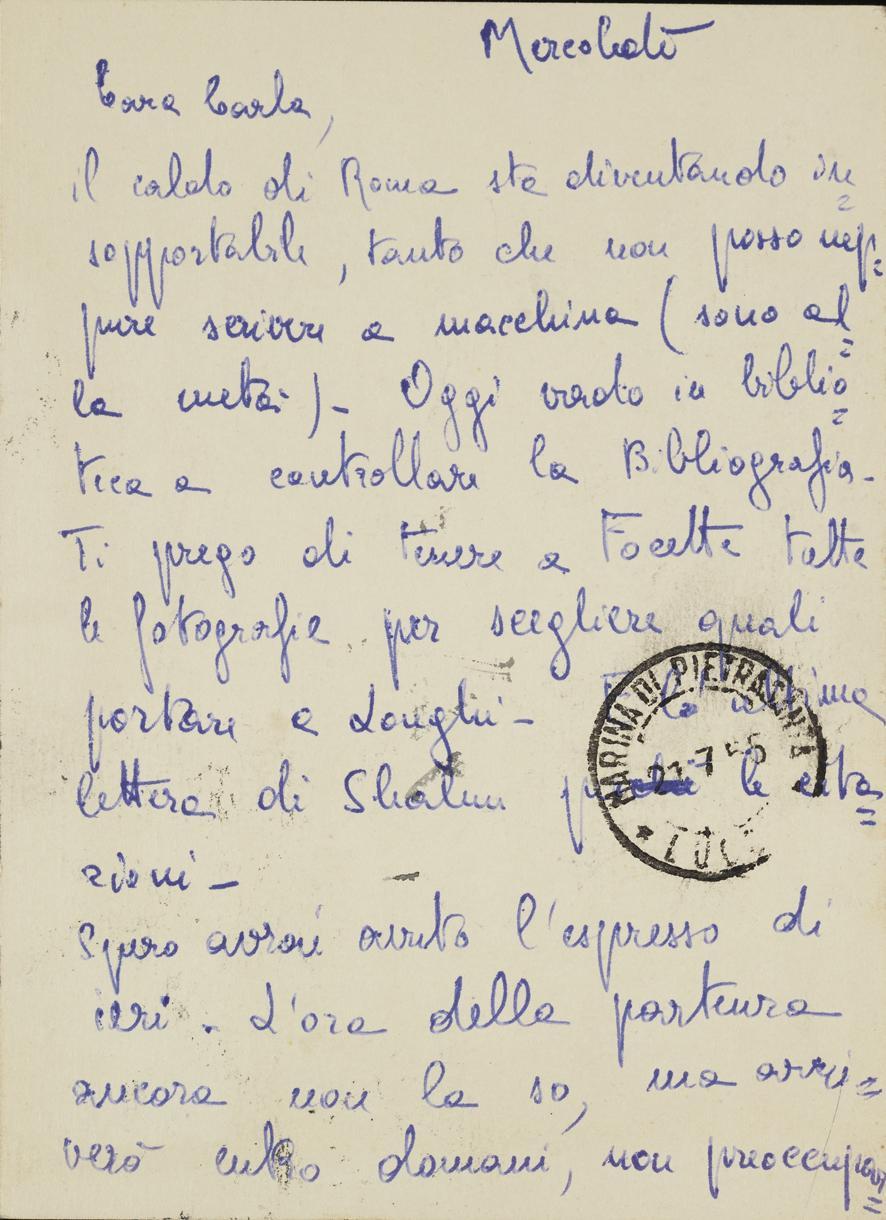 Mercoledì
Cara Carla,
il caldo di Roma sta diventando in=
sopportabile, tanto che non posso nep=
pure scrivere a macchina (sono al=
la metà)- Oggi vado in biblio=
teca a controllare la Bibliografia-
Ti prego di tenere a Focette tutte
le fotografie per scegliere quali
portare a Longhi- E la ultima
lettera di Shalun per le cita=
zioni-
Spero avrai avuto l'espresso di
ieri. L'ora della partenza
ancora non la so, ma arri=
verò entro domani, non preoccupar=
MARINA DI PIETRASANTA
21-7 55
* LUCCA